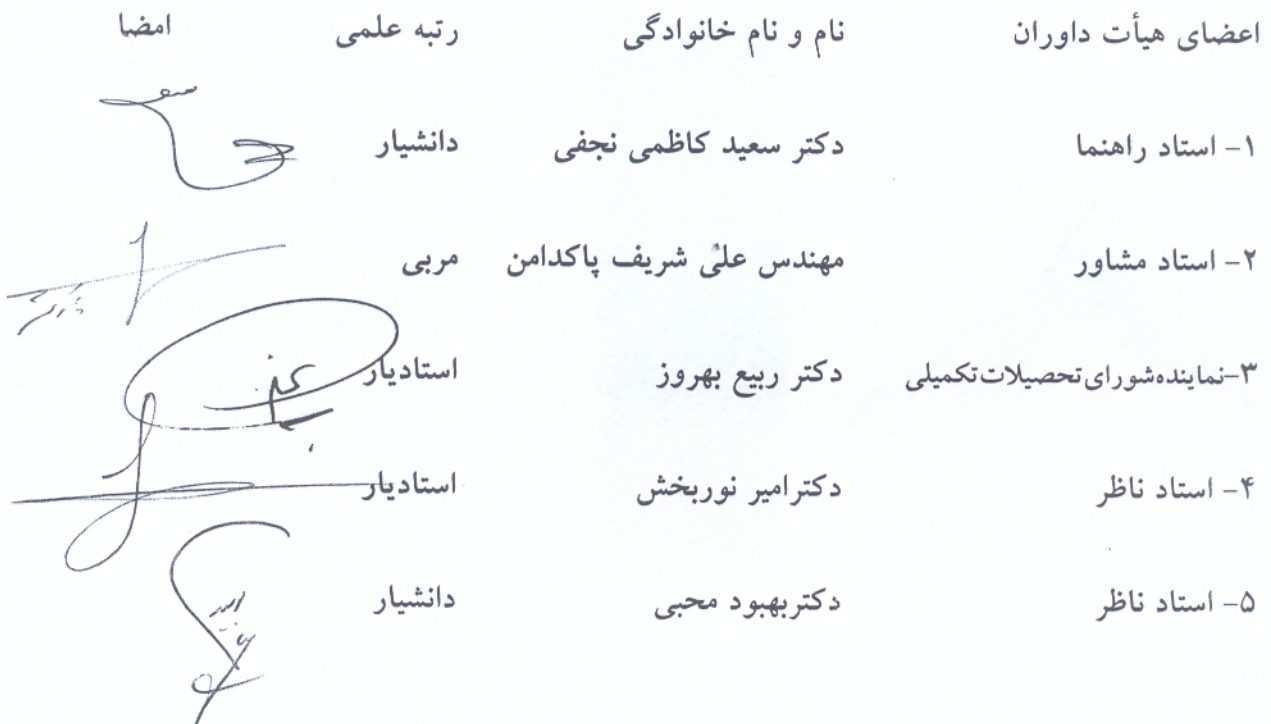 اعضای هیأت داوران نام و نام خانوادگی رتبه علمی امضا
۱- استاد راهنما دکتر سعید کاظمی نجفی دانشیار
۲- استاد مشاور مهندس علی شریف پاکدامن مربی
۳-نماینده‌شورای‌تحصیلات‌تکمیلی دکتر ربیع بهروز استادیار
۴- استاد ناظر دکترامیر نوربخش استادیار
۵- استاد ناظر دکتربهبود محبی دانشیار